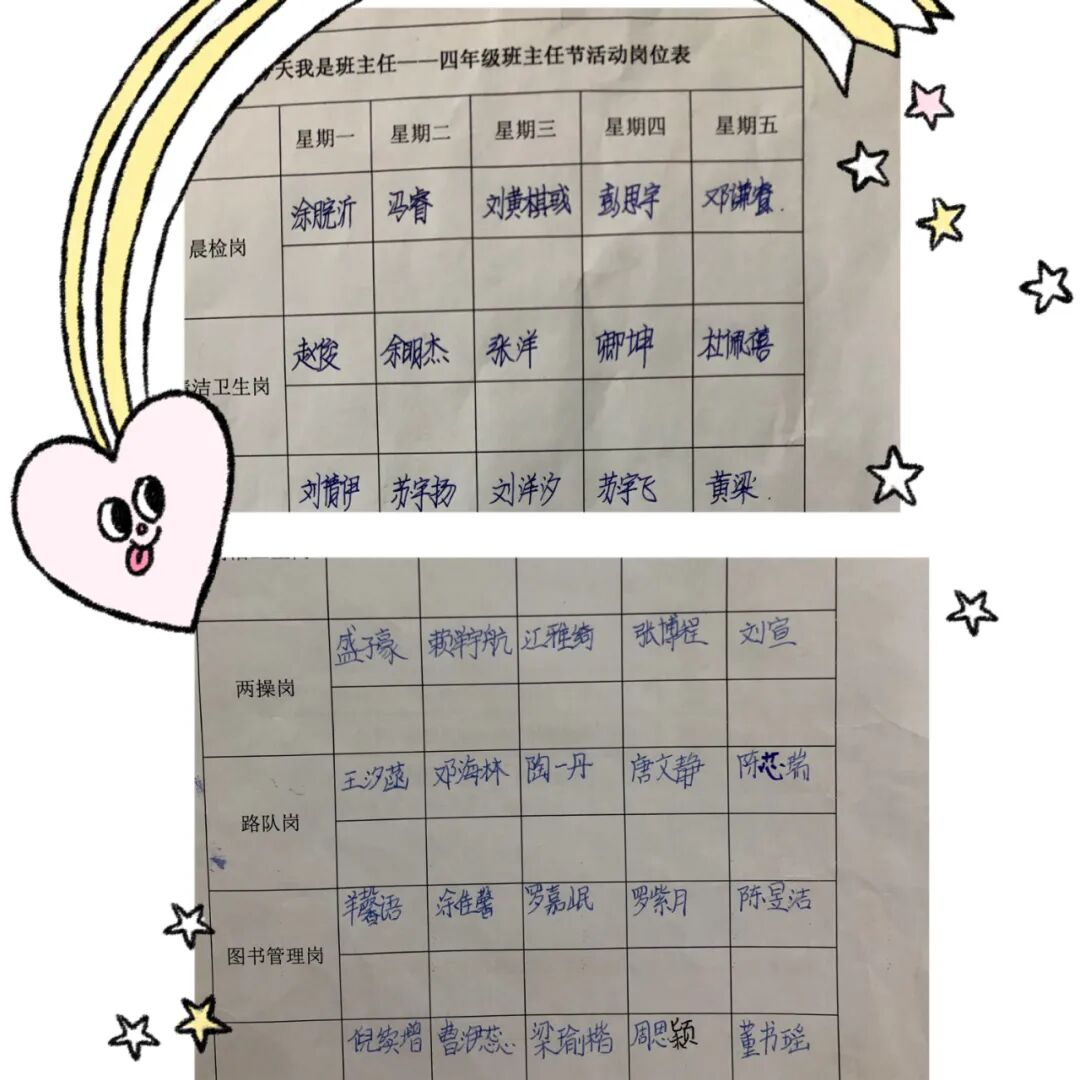 天我是班主任——四年级班主任节活动岗位表
星期一 星期二 星期三 星期四 星期五
涂脘沂 冯睿 刘黄棋彧 彭思宇 邓谦睿
晨检岗
赵俊 余明杰 张洋 卿坤 杜佩蓓
洁卫生岗
刘倩伊 苏宇扬 刘洋汐 苏宇飞 黄梁
盛子豪 赖单宇航 江雅绮 张博程 刘宣
两操岗
王汐菡 邓海林 陶一丹 唐文静 陈芯瑞
路队岗
羊馨语 涂佳馨 罗嘉岷 罗紫月 陈昱洁
图书管理岗
倪续增 曹伊蕊 梁瑜楷 周思颖 董书瑶